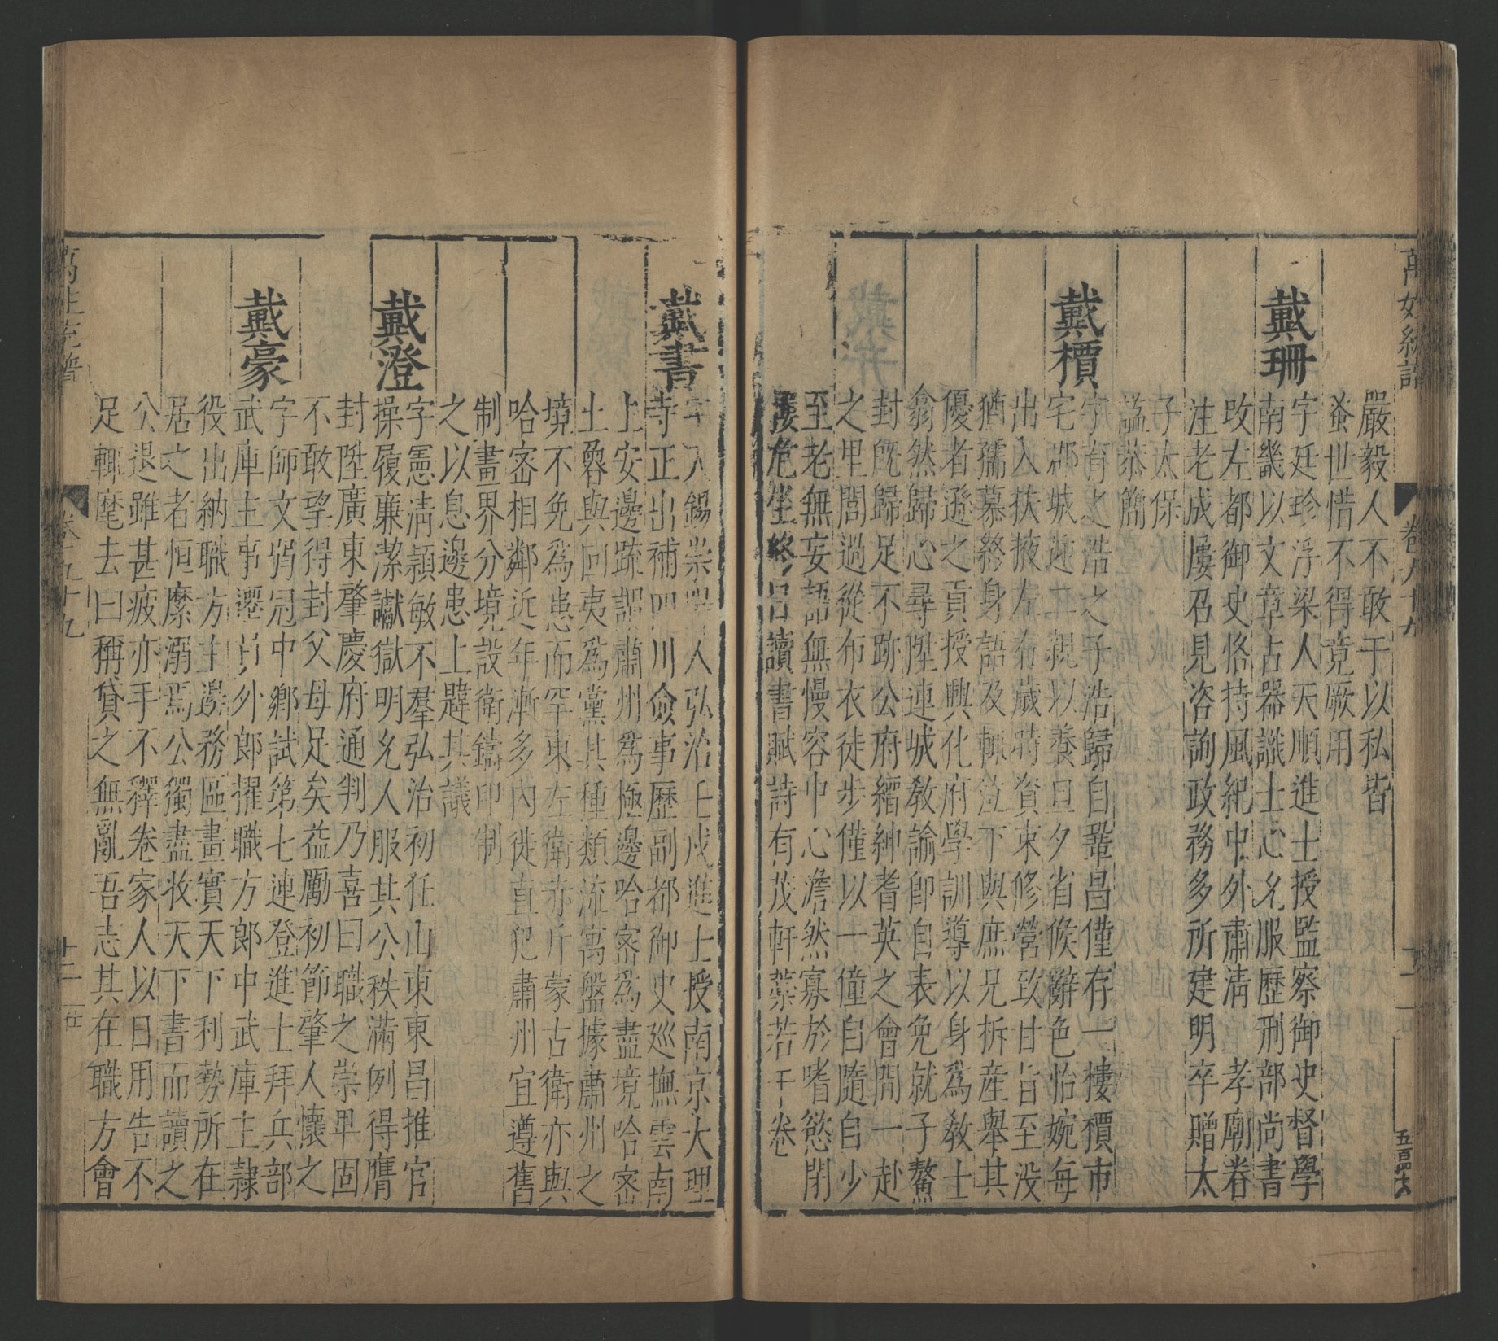 嚴毅人不敢于以私皆
蚤世惜不得竟厥用
戴珊
字廷珍浮梁人天順進士授監察御史督學
南畿以文章占器識士心允服歷刑部尚書
攺左都御史恪持風紀中外肅清 孝廟眷
注老成屢召見咨詢政務多所建明卒贈太
子太保
謚恭簡
戴櫝
字有之浩之子浩歸自鞏昌僅存一樓櫝市
宅郡城 以養旦夕省候辭色怡婉每
出入扶掖左右 資束修營致甘旨至没
猶孺慕終身語及輒泣下與庶兄拆産舉其
優者遜之貢授興化府學訓導以身爲教士
翕然歸心尋陞連城教諭卽自表免就子鰲
封旣歸足不跡公府縉紳耆英之會間一赴
之里閭過從布衣徒步僅以一僮自隨自少
至老無妄語無慢容中心澹然寡於嗜慾閉
讀書賦詩有茂軒藁若干卷
戴書
人弘治壬戌進士授南京大理
寺正出補四川僉事歷副都御史巡撫雲南
上安邊疏謂肅州爲極邊哈密爲盡境哈密
土 與回夷爲黨其種類流寓盤據肅州之
境不免爲患而罕東左衛赤斤蒙古衛亦與
哈密相鄰近年漸多內徙直犯肅州宜遵舊
制畫界分境設衛鑄印制
之以息邊患上韙其議
戴澄
字憲清頴敏不羣弘治初任山東東昌推官
操履廉潔讞獄明允人服其公秩滿例得膺
封陞廣東肇慶府通判乃喜曰職之崇卑固
不敢望得封父母足矣益勵初節肇人懷之
戴豪
字師文 冠中鄉試第七連登進士拜兵部
武庫主事遷 外郎擢職方郎中武庫主隷
役出納職方主邊務區畫實天下利勢所在
居之者恒縻溺焉公獨盡收天下書而讀之
公退雖甚疲亦手不釋卷家人以日用告不
足輒麾去曰稱貸之無亂吾志其在職方會
卷八十九
五百四六